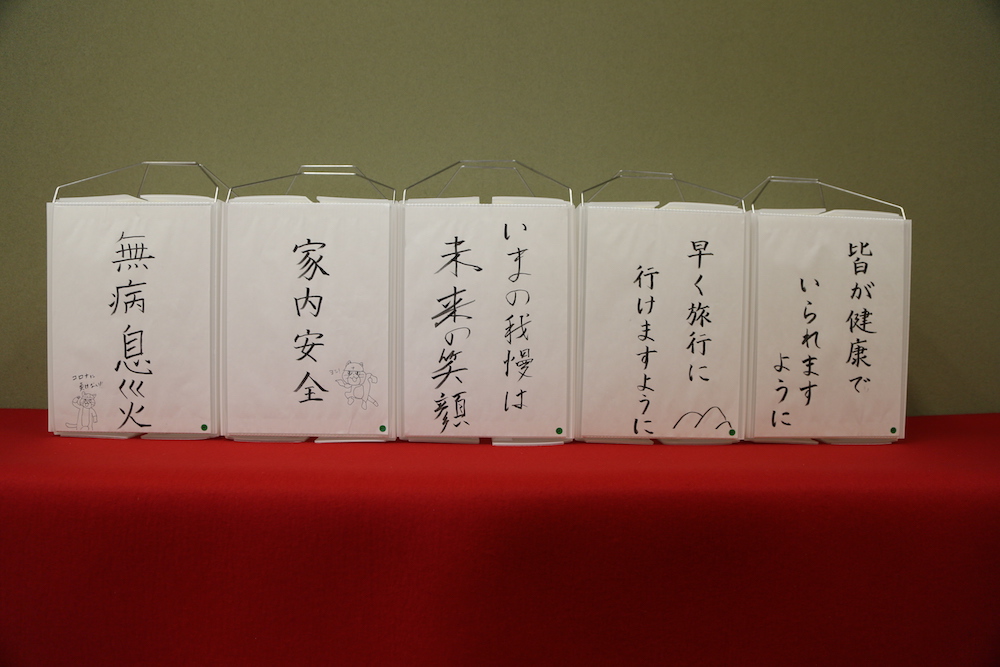 皆が健康で
いられます
ように
早く旅行に
行けますように
いまの我慢は
未来の笑顔
家内安全
無病息災
コロナに
負けない!!